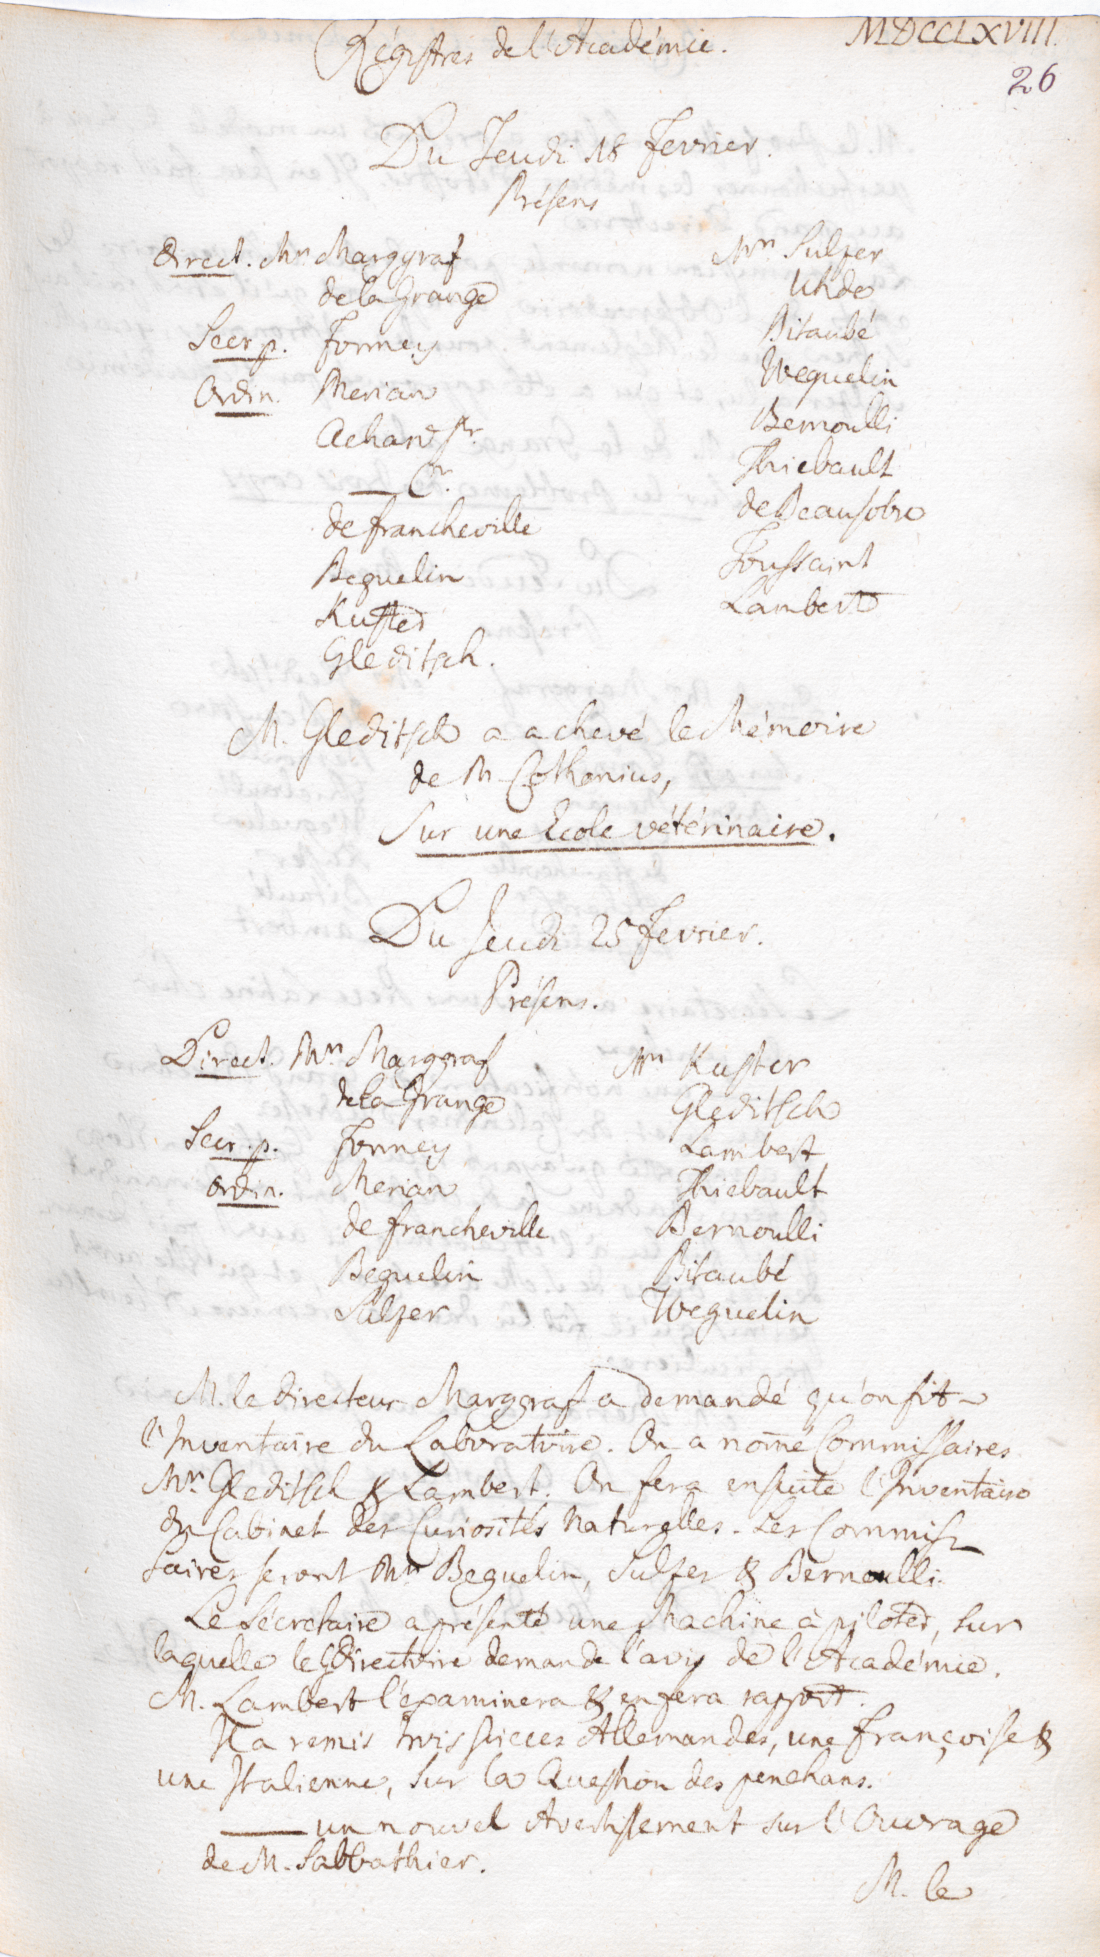 Régistres de l'Académie.
MDCCLXVIII.
26
Du Jeudi 18 Fevrier.
Présens
Direct. Mrs. Marggraf
de la Grange
Secr. p. Formey
Ordin. Merian
Achard Fr.
___ Gr.
de Francheville
Beguelin
Kuster
Gleditsch.
Mrs Sulzer
Uhde
Bitaubé
Weguelin
Bernoulli
Thiebault
de Beausobre
Toussaint
Lambert
M. Gleditsch a achevé le Mémoire
de M. Cothenius,
Sur une Ecole vétérinaire.
Du Jeudi 25 Fevrier.
Présens.
Direct. Mrs Marggraf
de la Grange
Secr. p. Formey
Ordin. Merian
de Francheville
Beguelin
Sulzer
Mrs Kuster
Gleditsch
Lambert
Thiebault
Bernoulli
Bitaubé
Weguelin
M. le Directeur Marggraf a demandé qu'on fit
l'Inventaire du Laboratoire. On a nom̄é Commissaires
Mrs. Gleditsch & Lambert. On fera ensuite l'Inventaire
du Cabinet des Curiosités Naturelles. Les Commis-
saires seront Mrs Beguelin, Sulzer & Bernoulli.
Le Sécretaire a présenté une Machine à piloter, sur
laquelle le Gdirectoire demande l'avis de l'Académie.
M. Lambert l'examinera & en fera rapport.
Il a remis trois pieces Allemandes, une françoise &
une Italienne, sur la Question des penchans.
___ un nouvel Avertissement sur l'Ouvrage
de M. Sabbathier.
M. le